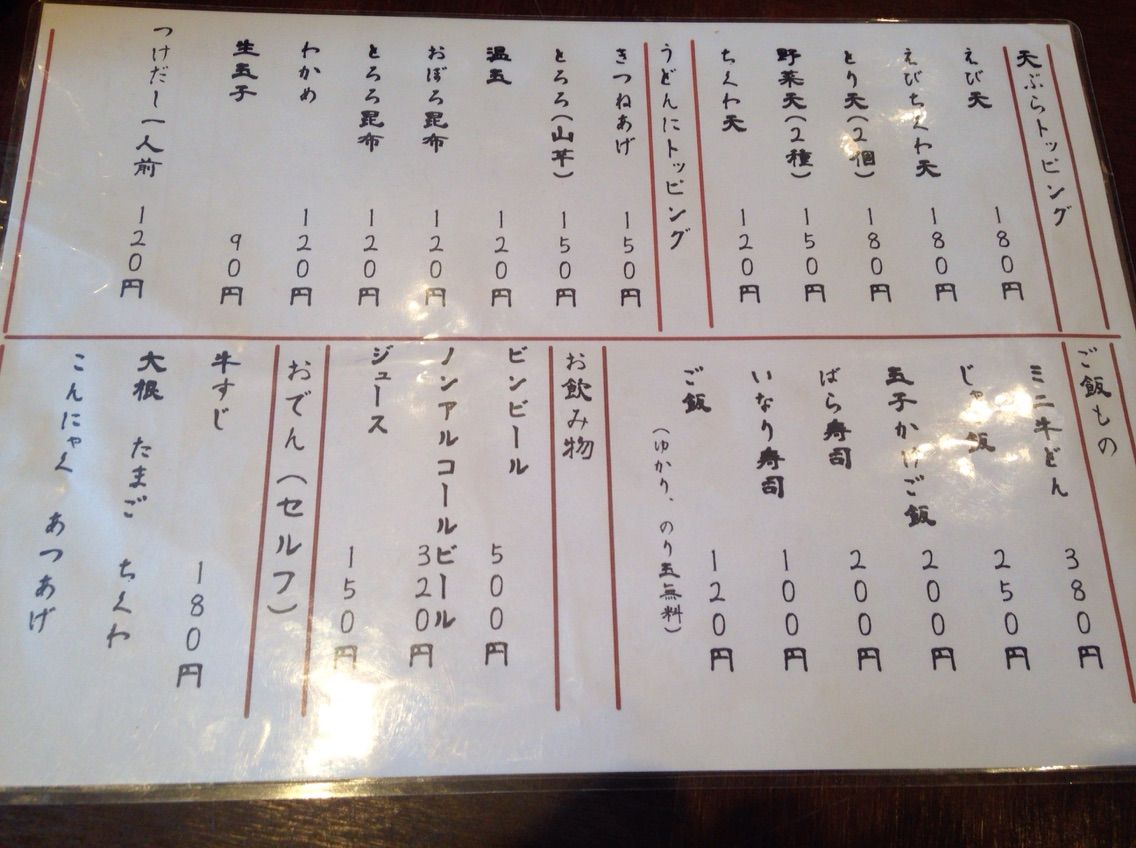 天ぷらトッピング
えび天 180円
えびちくわ天 180円
とり天(2個) 180円
野菜天(2種) 150円
ちくわ天 120円
うどんにトッピング
きつねあげ 150円
とろろ(山芋) 150円
温玉 120円
おぼろ昆布 120円
とろろ昆布 120円
わかめ 120円
生玉子 90円
つけだし一人前 120円
ご飯もの
ミニ牛どん 380円
じゃこ飯 250円
玉子かけご飯 200円
ばら寿司 200円
いなり寿司 100円
ご飯 120円
(ゆかり、のり玉無料)
お飲み物
ビンビール 500円
ノンアルコールビール 320円
ジュース 150円
おでん(セルフ)
牛すじ 180円
大根 たまご ちくわ
こんにゃく あつあげ